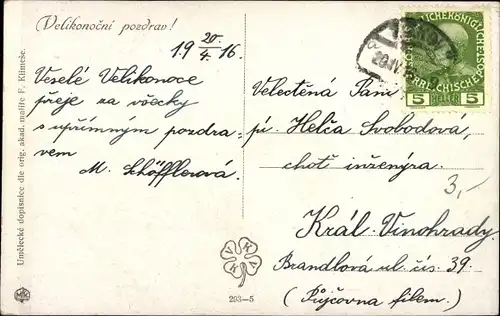 Velikonoční pozdrav!
19 20/4 16.
Veselé Velikonoce
přeje za všecky
s upřímným pozdra-
vem
M. Schöfflerová.
Umělecké dopisnice dle orig. akad. malíře F. Klimeše.
Velectěná Paní
pí. Helča Svobodová,
choť inženýra.
3,-
Král. Vinohrady
Brandlová ul. čís. 39.
(Půjčovna filem.)
5 HELLER 5
V K V
293-5